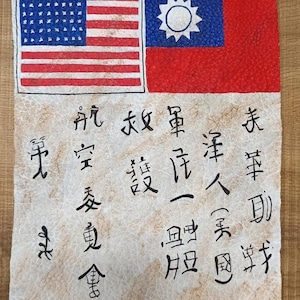 来華助戰
洋人(美國)
軍民一體
救護
航空委員會
第